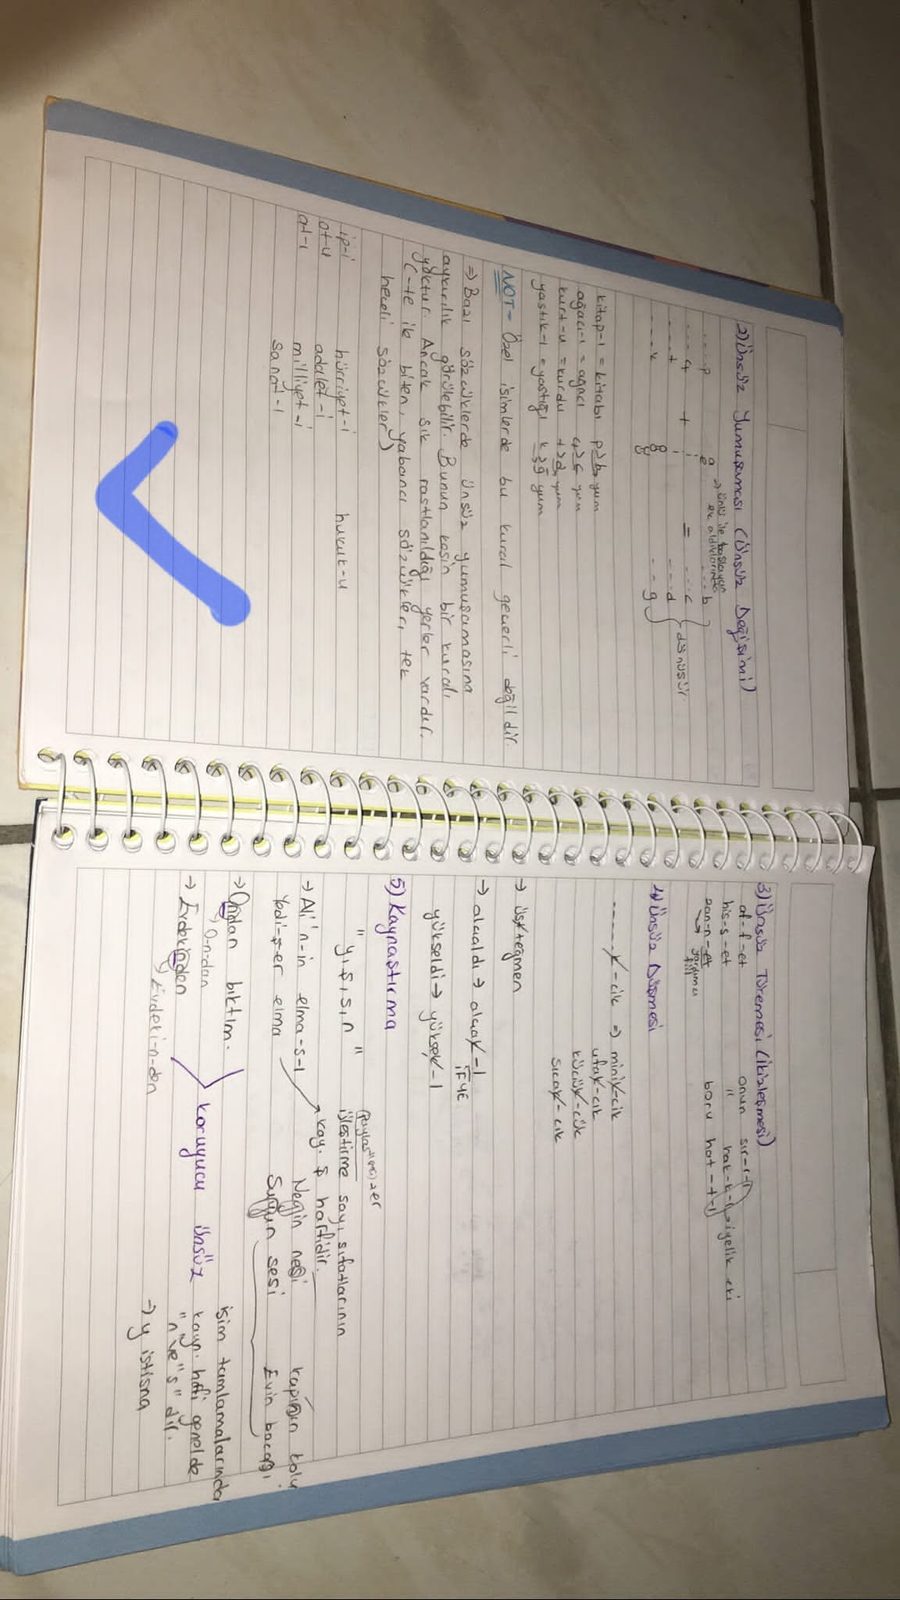 2) Ünsüz Yumuşaması (Ünsüz Değişimi)
----p a → ünlü ile başlayan
----ç + e ek aldıklarında ----b
----t ı = ----c
----k ----d } dönüşür
--ğ
kitap-ı = kitabı p>b yum
ağacı-ı = ağacı ç>c yum
kurt-u = kurdu t>d yum
yastık-ı = yastığı k>ğ yum
NOT- Özel isimlerde bu kural geçerli değildir
⇒ Bazı sözcüklerde ünsüz yumuşamasına
aykırılık görülebilir. Bunun kesin bir kuralı
yoktur. Ancak sık rastlanıldığı yerler vardır.
(-te ile biten, yabancı sözcükler, tek
heceli sözcükler)
ip-i hürriyet-i hukuk-u
ot-u adalet-i
at-ı milliyet-i
sanat-ı
3) Ünsüz Türemesi (İkizleşmesi)
af-f-et onun sır-r-ı
his-s-et " hak-k-ı → iyelik eki
zan-n-et boru hat-t-ı
→ yardımcı
fiil
4) Ünsüz Düşmesi
------k-cik ⇒ minik-cik
ufak-cık
küçük-cük
sıcak-cık
→ üst+teğmen
→ alçaldı → alçak-l
İFYE
yükseldi → yüksek-l
5) Kaynaştırma
"y, ş, s, n" üleştirme sayı sıfatlarının
→ kay. ş harfidir.
→ Ali'n-in elma-s-ı Neyin nesi kapının kolu
Yedi-ş-er elma Suyun sesi Evin bacağı
→ Ondan bıktım.
→ O-n-dan
→ Evdekinden
→ Evdeki-n-den
koruyucu ünsüz
isim tamlamalarında
kayn. harfi genelde
"n" ve "s" dir.
→ y istisna